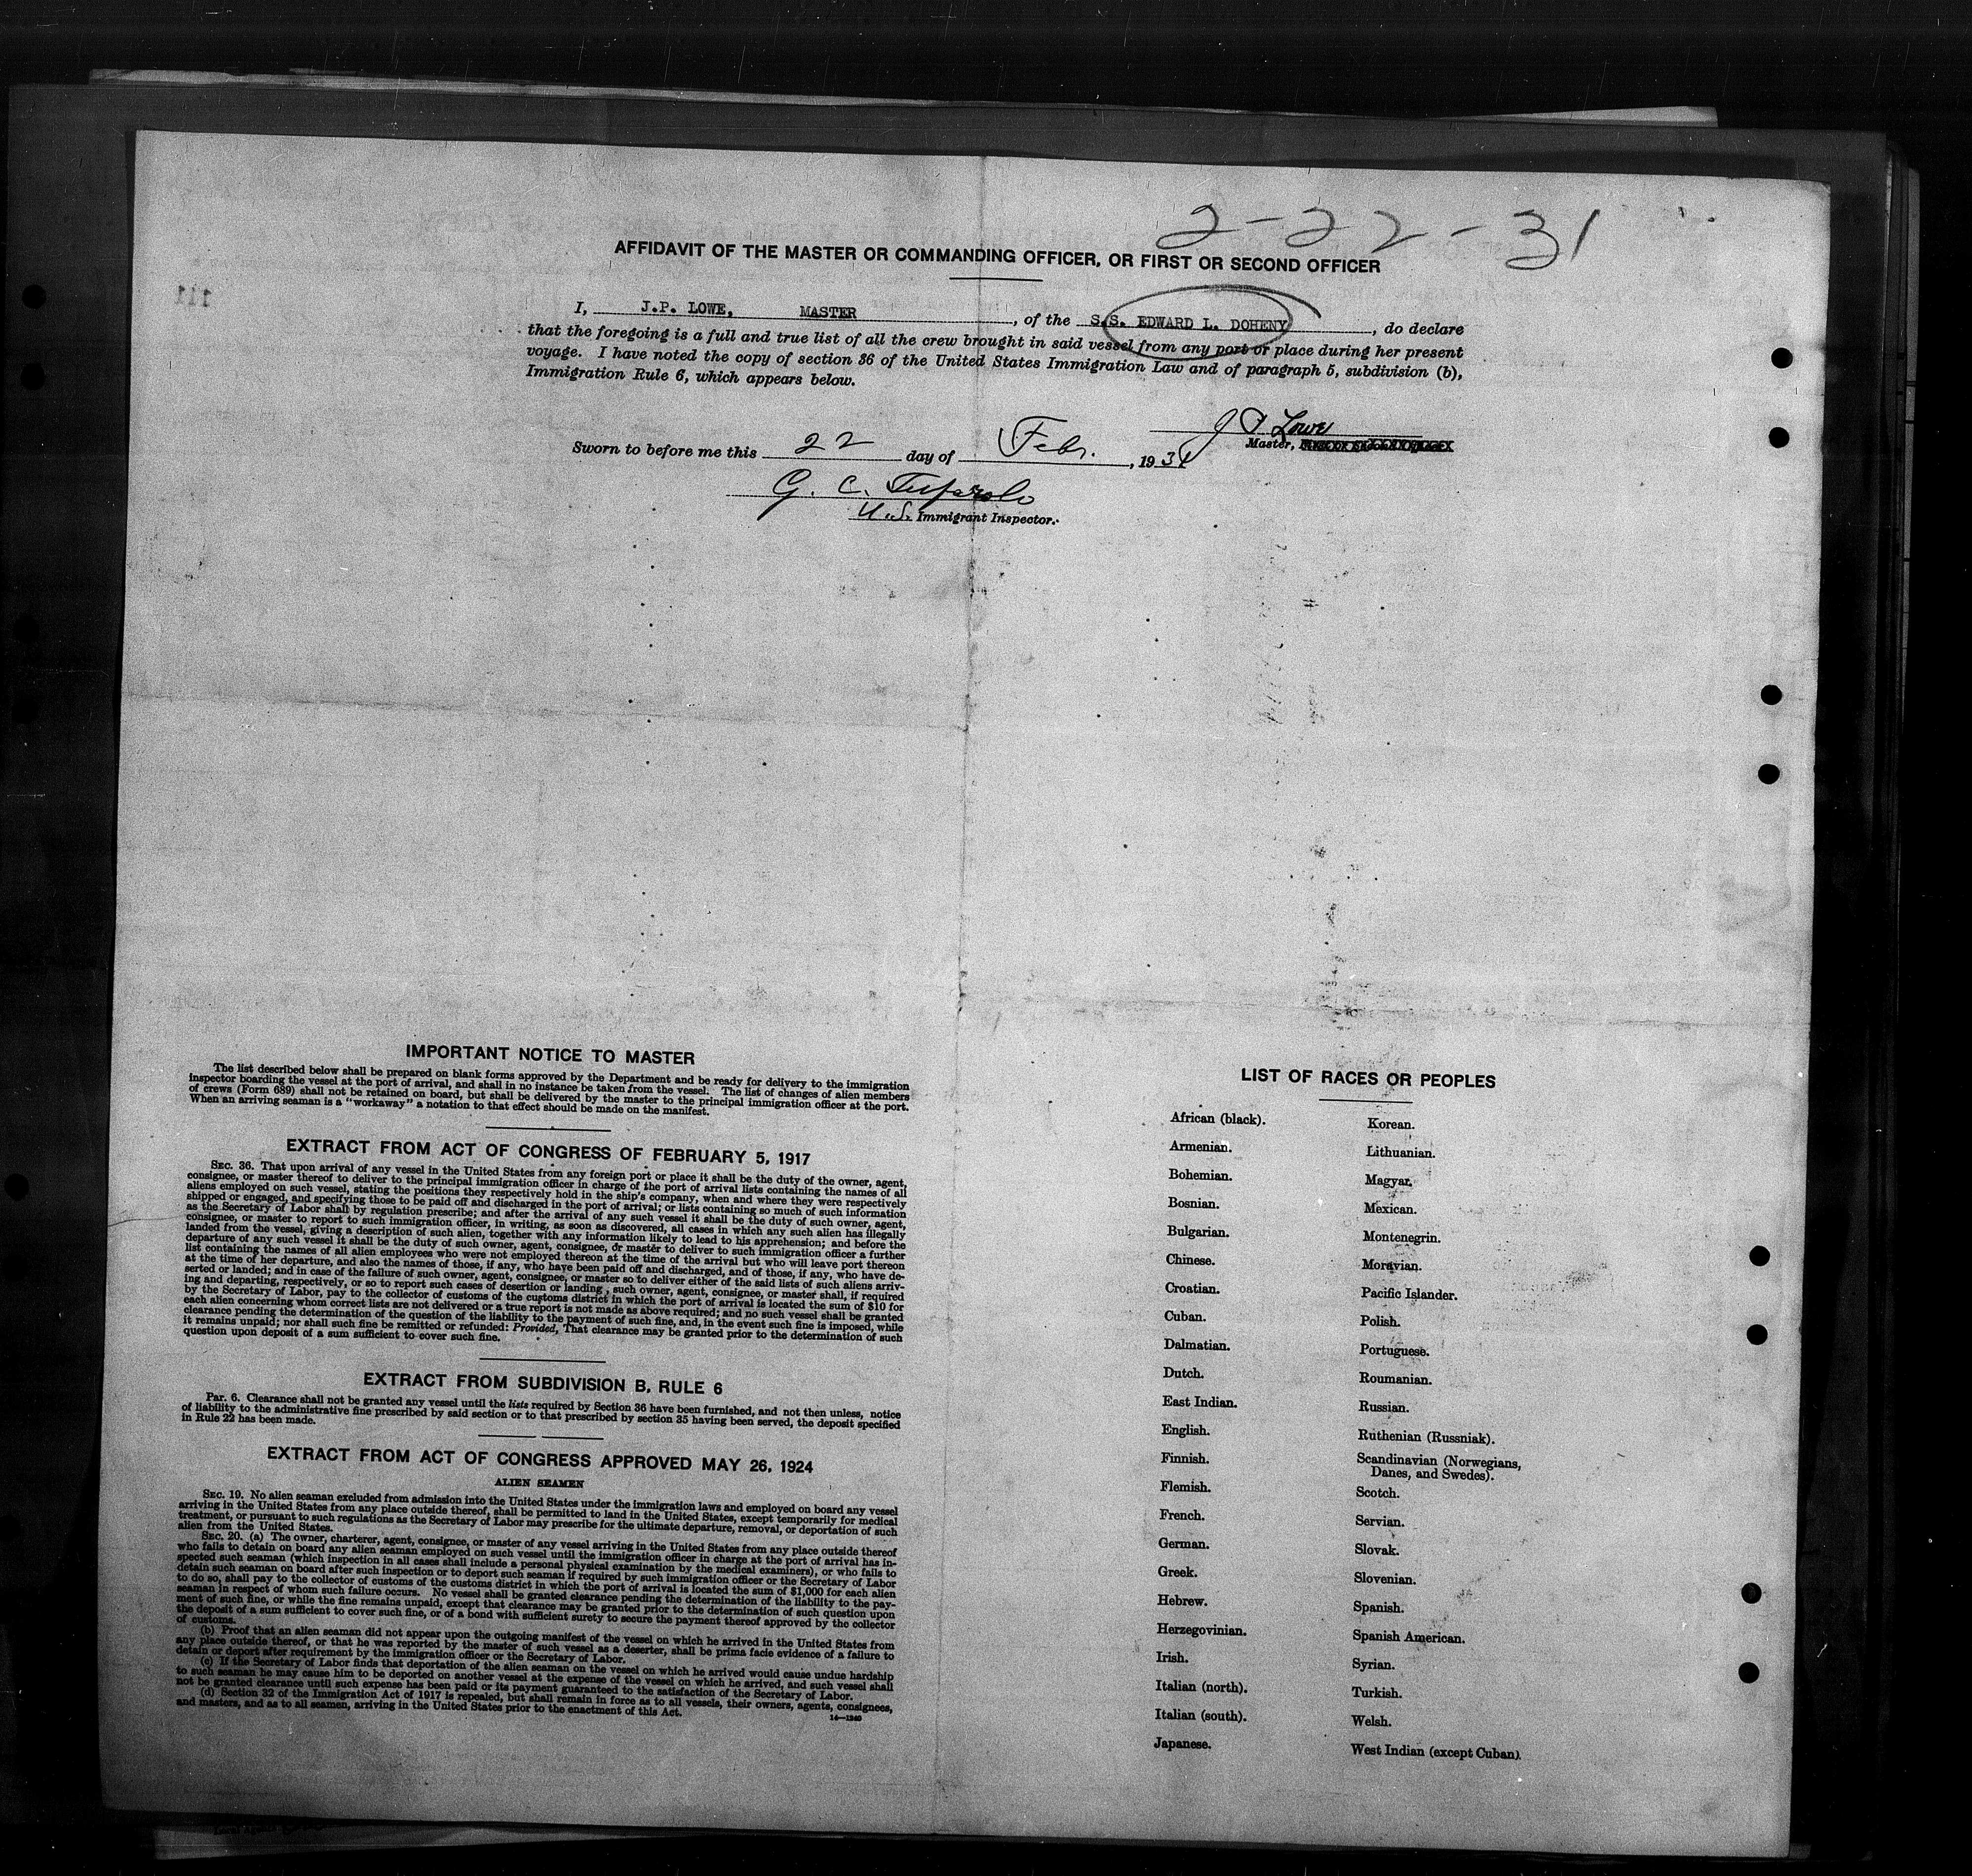 2-22-31
AFFIDAVIT OF THE MASTER OR COMMANDING OFFICER, OR FIRST OR SECOND OFFICER
111
I, J.P. LOWE, MASTER, of the S.S. EDWARD L. DOHENY, do declare
that the foregoing is a full and true list of all the crew brought in said vessel from any port or place during her present
voyage. I have noted the copy of section 36 of the United States Immigration Law and of paragraph 5, subdivision (b),
Immigration Rule 6, which appears below.
J P Lowe
Master,
Sworn to before me this 22 day of Febr., 1931
G. C.
U.S. Immigrant Inspector.
IMPORTANT NOTICE TO MASTER
The list described below shall be prepared on blank forms approved by the Department and be ready for delivery to the immigration
inspector boarding the vessel at the port of arrival, and shall in no instance be taken from the vessel. The list of changes of alien members
of crews (Form 689) shall not be retained on board, but shall be delivered by the master to the principal immigration officer at the port.
When an arriving seaman is a "workaway" a notation to that effect should be made on the manifest.
EXTRACT FROM ACT OF CONGRESS OF FEBRUARY 5, 1917
SEC. 36. That upon arrival of any vessel in the United States from any foreign port or place it shall be the duty of the owner, agent,
consignee, or master thereof to deliver to the principal immigration officer in charge of the port of arrival lists containing the names of all
aliens employed on such vessel, stating the positions they respectively hold in the ship's company, when and where they were respectively
shipped or engaged, and specifying those to be paid off and discharged in the port of arrival; or lists containing so much of such information
as the Secretary of Labor shall by regulation prescribe; and after the arrival of any such vessel it shall be the duty of such owner, agent,
consignee, or master to report to such immigration officer, in writing, as soon as discovered, all cases in which any such alien has illegally
landed from the vessel, giving a description of such alien, together with any information likely to lead to his apprehension; and before the
departure of any such vessel it shall be the duty of such owner, agent, consignee, or master to deliver to such immigration officer a further
list containing the names of all alien employees who were not employed thereon at the time of the arrival but who will leave port thereon
at the time of her departure, and also the names of those, if any, who have been paid off and discharged, and of those, if any, who have de-
serted or landed; and in case of the failure of such owner, agent, consignee, or master so to deliver either of the said lists of such aliens arriv-
ing and departing, respectively, or so to report such cases of desertion or landing, such owner, agent, consignee, or master shall, if required
by the Secretary of Labor, pay to the collector of customs of the customs district in which the port of arrival is located the sum of $10 for
each alien concerning whom correct lists are not delivered or a true report is not made as above required; and no such vessel shall be granted
clearance pending the determination of the question of the liability to the payment of such fine, and, in the event such fine is imposed, while
it remains unpaid; nor shall such fine be remitted or refunded: Provided, That clearance may be granted prior to the determination of such
question upon deposit of a sum sufficient to cover such fine.
EXTRACT FROM SUBDIVISION B, RULE 6
Par. 6. Clearance shall not be granted any vessel until the lists required by Section 36 have been furnished, and not then unless, notice
of liability to the administrative fine prescribed by said section or to that prescribed by section 35 having been served, the deposit specified
in Rule 22 has been made.
EXTRACT FROM ACT OF CONGRESS APPROVED MAY 26, 1924
ALIEN SEAMEN
SEC. 19. No alien seaman excluded from admission into the United States under the immigration laws and employed on board any vessel
arriving in the United States from any place outside thereof, shall be permitted to land in the United States, except temporarily for medical
treatment, or pursuant to such regulations as the Secretary of Labor may prescribe for the ultimate departure, removal, or deportation of such
alien from the United States.
SEC. 20. (a) The owner, charterer, agent, consignee, or master of any vessel arriving in the United States from any place outside thereof
who fails to detain on board any alien seaman employed on such vessel until the immigration officer in charge at the port of arrival has in-
spected such seaman (which inspection in all cases shall include a personal physical examination by the medical examiners), or who fails to
detain such seaman on board after such inspection or to deport such seaman if required by such immigration officer or the Secretary of Labor
to do so, shall pay to the collector of customs of the customs district in which the port of arrival is located the sum of $1,000 for each alien
seaman in respect of whom such failure occurs. No vessel shall be granted clearance pending the determination of the liability to the pay-
ment of such fine, or while the fine remains unpaid, except that clearance may be granted prior to the determination of such question upon
the deposit of a sum sufficient to cover such fine, or of a bond with sufficient surety to secure the payment thereof approved by the collector
of customs.
(b) Proof that an alien seaman did not appear upon the outgoing manifest of the vessel on which he arrived in the United States from
any place outside thereof, or that he was reported by the master of such vessel as a deserter, shall be prima facie evidence of a failure to
detain or deport after requirement by the immigration officer or the Secretary of Labor.
(c) If the Secretary of Labor finds that deportation of the alien seaman on the vessel on which he arrived would cause undue hardship
to such seaman he may cause him to be deported on another vessel at the expense of the vessel on which he arrived, and such vessel shall
not be granted clearance until such expense has been paid or its payment guaranteed to the satisfaction of the Secretary of Labor.
(d) Section 32 of the Immigration Act of 1917 is repealed, but shall remain in force as to all vessels, their owners, agents, consignees,
and masters, and as to all seamen, arriving in the United States prior to the enactment of this Act.
14—1240
LIST OF RACES OR PEOPLES
African (black).
Armenian.
Bohemian.
Bosnian.
Bulgarian.
Chinese.
Croatian.
Cuban.
Dalmatian.
Dutch.
East Indian.
English.
Finnish.
Flemish.
French.
German.
Greek.
Hebrew.
Herzegovinian.
Irish.
Italian (north).
Italian (south).
Japanese.
Korean.
Lithuanian.
Magyar.
Mexican.
Montenegrin.
Moravian.
Pacific Islander.
Polish.
Portuguese.
Roumanian.
Russian.
Ruthenian (Russniak).
Scandinavian (Norwegians,
Danes, and Swedes).
Scotch.
Servian.
Slovak.
Slovenian.
Spanish.
Spanish American.
Syrian.
Turkish.
Welsh.
West Indian (except Cuban).